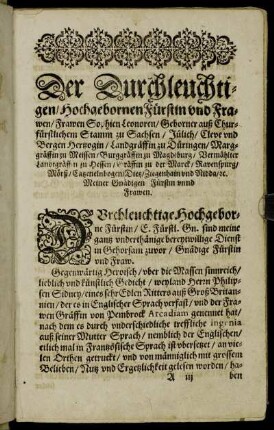 Der Durchleuchti-
gen/Hochgebornen Fürstin vnd Fra-
wen/Frawen So, hien Leonoren/Geborner auß Chur-
fürstlichem Stamm zu Sachsen/Jülich/Cleve vnd
Bergen Hertzogin/Landgräffin zu Düringen/Marg-
gräffin zu Meissen/Burggräffin zu Magdeburg/Vermählter
Landgräffin zu Hessen/Gräffin zu der Marck/Ravensburg/
Mörß/Catzenelnbogen/Dietz/Ziegenhain vnd Nidda/ꝛc.
Meiner Gnädigen Fürstin vnnd
Frawen.
DVrchleuchtige Hochgebor-
ne Fürstin/E. Fürstl. Gn. sind meine
gantz vnderthänige bereytwillige Dienst
in Gehorsam zuvor/Gnädige Fürstin
vnd Fraw.
Gegenwärtig Heroisch/vber die Massen sinnreich/
lieblich vnd künstlich Gedicht/weyland Herrn Philip-
sen Sidney/eines sehr Edlen Ritters auß Groß Britan-
nien/der es in Englischer Sprach verfast/vnd der Fra-
wen Gräffin von Pembrock Arcadiam genennet hat/
nach dem es durch vnderschiedliche treffliche ingenia
auß seiner Mutter Sprach/nemblich der Englischen/
etlich mal in Frantzösische Sprach ist vbersetzet/an vie-
len Orthen getruckt/vnd von männiglich mit grossem
Belieben/Nutz vnd Ergetzlichkeit gelesen worden/ha-
A iij ben